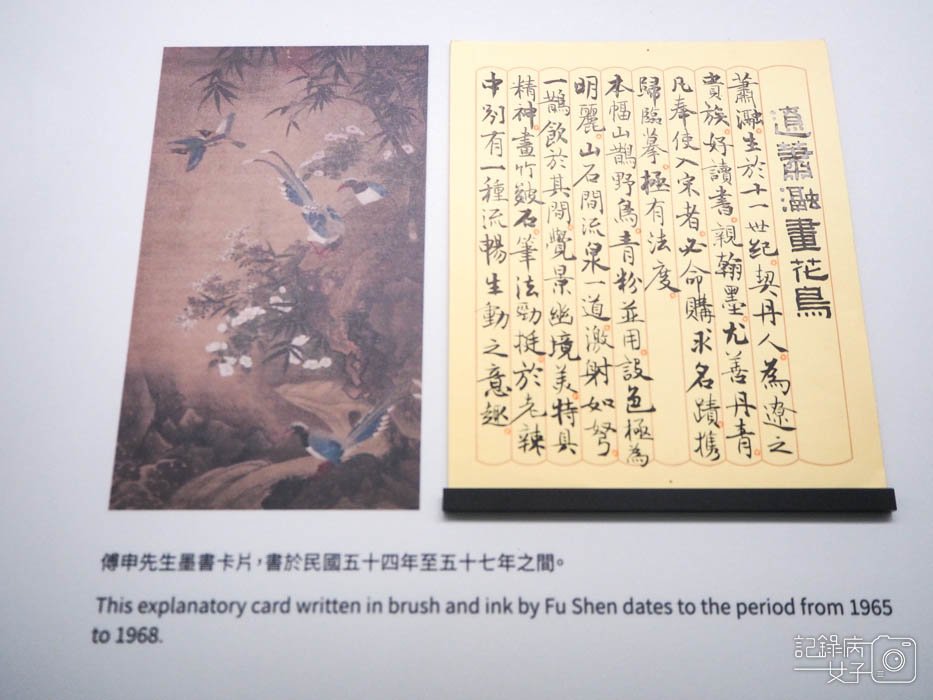 遼蕭瀜畫花鳥
蕭瀜。生於十一世紀。契丹人。為遼之
貴族。好讀書。親翰墨。尤善丹青。
凡奉使入宋者。必命購求名蹟。攜
歸臨摹。極有法度。
本幅山鵲野鳥。青粉並用。設色極為
明麗。山石間流泉一道。激射如弩。
一鵲飲於其間。覺景幽境美。特具
精神。畫竹皴石。筆法勁挺。於老辣
中別有一種流暢生動之意趣。
傅申先生墨書卡片，書於民國五十四年至五十七年之間。
This explanatory card written in brush and ink by Fu Shen dates to the period from 1965
to 1968.
記錄病
女子